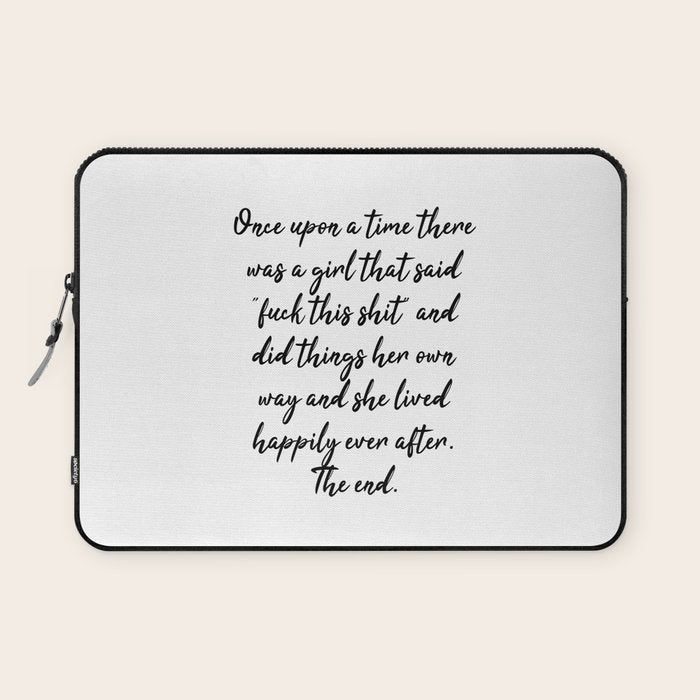 Once upon a time there
was a girl that said
"fuck this shit" and
did things her own
way and she lived
happily ever after.
The end.
society6